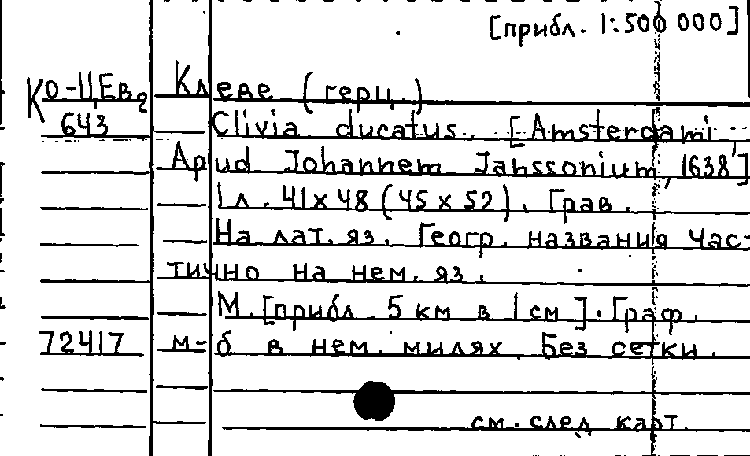 [прибл. 1:500 000]
Ко-II,Ев2 Клеве (герц.)
643 Clivia ducatus. [Amsterdami
Apud Johannem Janssonium, 1638]
1 л. 41х48 (45 х 52). Грав.
На лат. яз. Геогр. названия час-
тично на нем. яз.
М. [прибл. 5 км в 1 см]. Граф.
72417 м-б в нем. милях. Без сетки.
см. след карт.